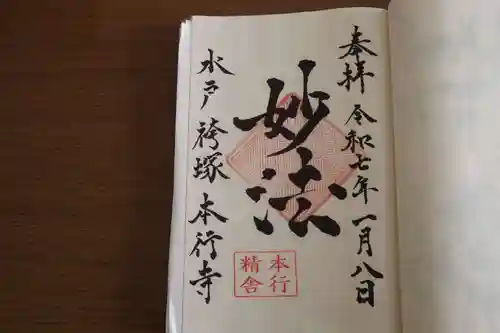 奉拝 令和七年一月八日
妙法
水戸 袴塚 本行寺
本行
精舎